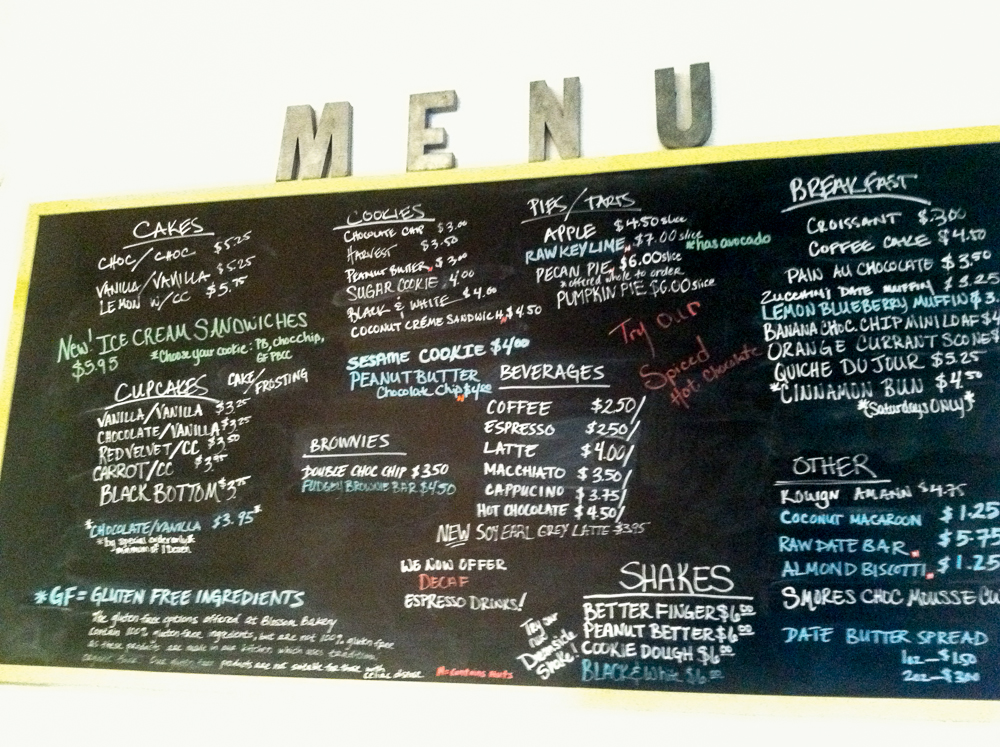 MENU
CAKES
CHOC/CHOC $5.25
VANILLA/VANILLA $5.25
LEMON W/CC $5.75
New! ICE CREAM SANDWICHES
$5.95 *Choose your cookie: PB, choc chip,
GF PBCC
CUPCAKES CAKE/FROSTING
VANILLA/VANILLA $3.25
CHOCOLATE/VANILLA $3.25
RED VELVET/CC $3.50
CARROT/CC
BLACK BOTTOM
*CHOCOLATE/VANILLA $3.95*
*by special order only*
*minimum of 1 Dozen
*GF = GLUTEN FREE INGREDIENTS
The gluten-free options offered at Blossom Bakery
contain 100% gluten-free ingredients, but are not 100% gluten-free
as these products are made in our kitchen which uses
products are not suitable for those with
celiac disease *=Contains Nuts
COOKIES
CHOCOLATE CHIP $3.00
HARVEST $3.50
PEANUT BUTTER $3.00
SUGAR COOKIE 4.00
BLACK & WHITE $4.00
COCONUT CRÉME SANDWICH $4.50
SESAME COOKIE $4.00
PEANUT BUTTER
Chocolate Chip $4.00
BROWNIES
DOUBLE CHOC CHIP $3.50
FUDGEY BROWNIE BAR $4.50
PIES/TARTS
APPLE $4.50 slice
RAW KEY LIME $7.00 slice *has avocado
PECAN PIE $6.00 slice
*offered whole to order
PUMPKIN PIE $6.00 slice
Try our
Spiced
Hot Chocolate
BEVERAGES
COFFEE $2.50/
ESPRESSO $2.50/
LATTE $4.00/
MACCHIATO $3.50/
CAPPUCINO $3.75/
HOT CHOCOLATE $4.50/
NEW SOY EARL GREY LATTE $3.95
WE NOW OFFER
DECAF
ESPRESSO DRINKS!
Try our
Shake!
SHAKES
BETTER FINGER $6.00
PEANUT BETTER $6.00
COOKIE DOUGH $6.00
BLACK & White $6.00
BREAKFAST
CROISSANT $3.00
COFFEE CAKE $4.50
PAIN AU CHOCOLATE $3.50
ZUCCHINI DATE MUFFIN $3.25
LEMON BLUEBERRY MUFFIN $3.
BANANA CHOC. CHIP MINI LOAF $4
ORANGE CURRANT SCONE $
QUICHE DU JOUR $5.25
*CINNAMON BUN $4.50
*Saturdays ONLY*
OTHER
KOUIGN AMANN $4.75
COCONUT MACAROON $1.25
RAW DATE BAR $5.75
ALMOND BISCOTTI $1.25
SMORES CHOC MOUSSE CU
DATE BUTTER SPREAD
1oz—$1.50
2oz—$3.00